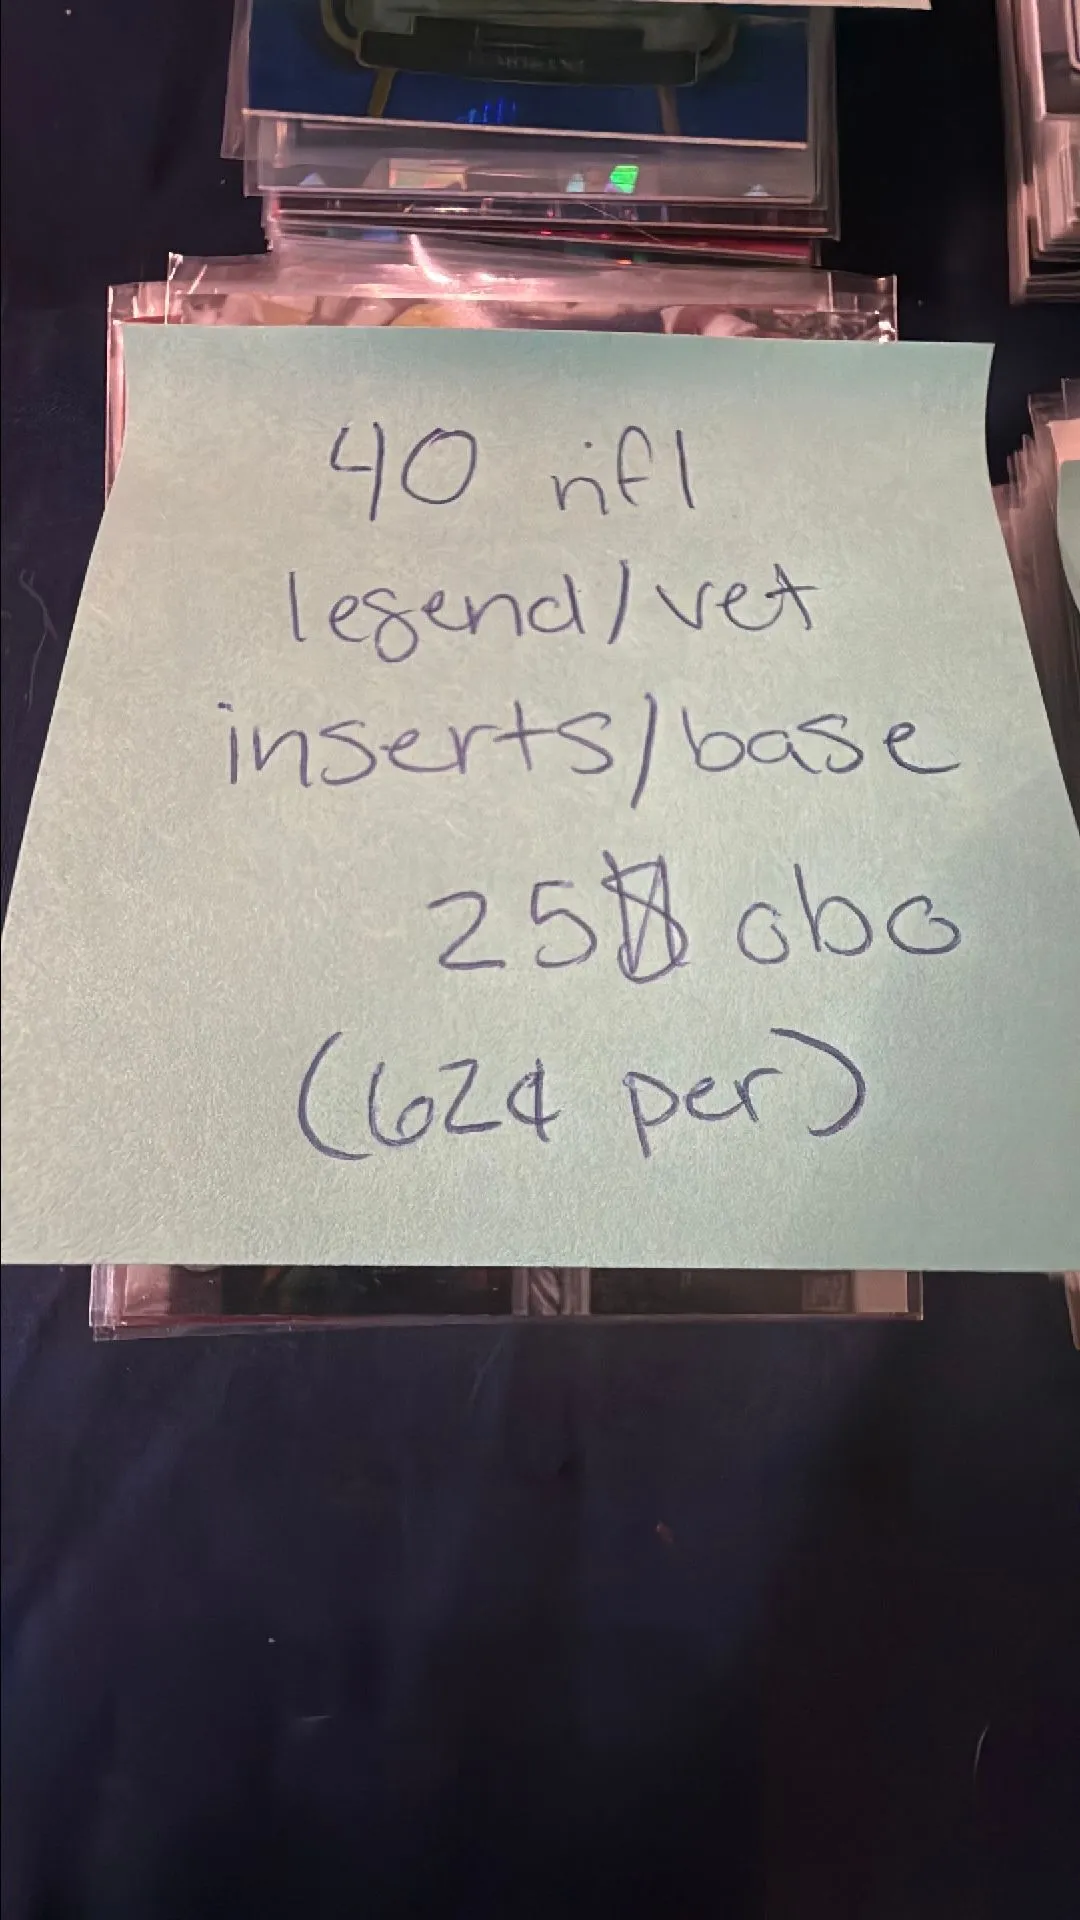 40 nfl
legend/vet
inserts/base
25$ obo
(62¢ per)